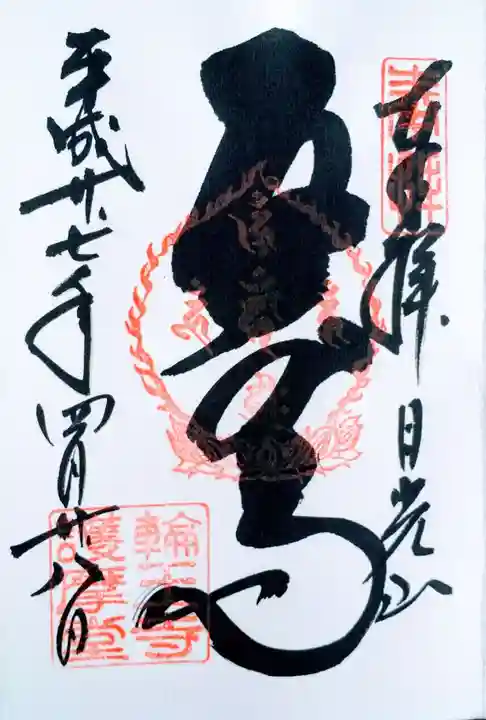 奉拝 日光山
五大尊
平成廿七年四月廿八日
輪王寺
護摩堂